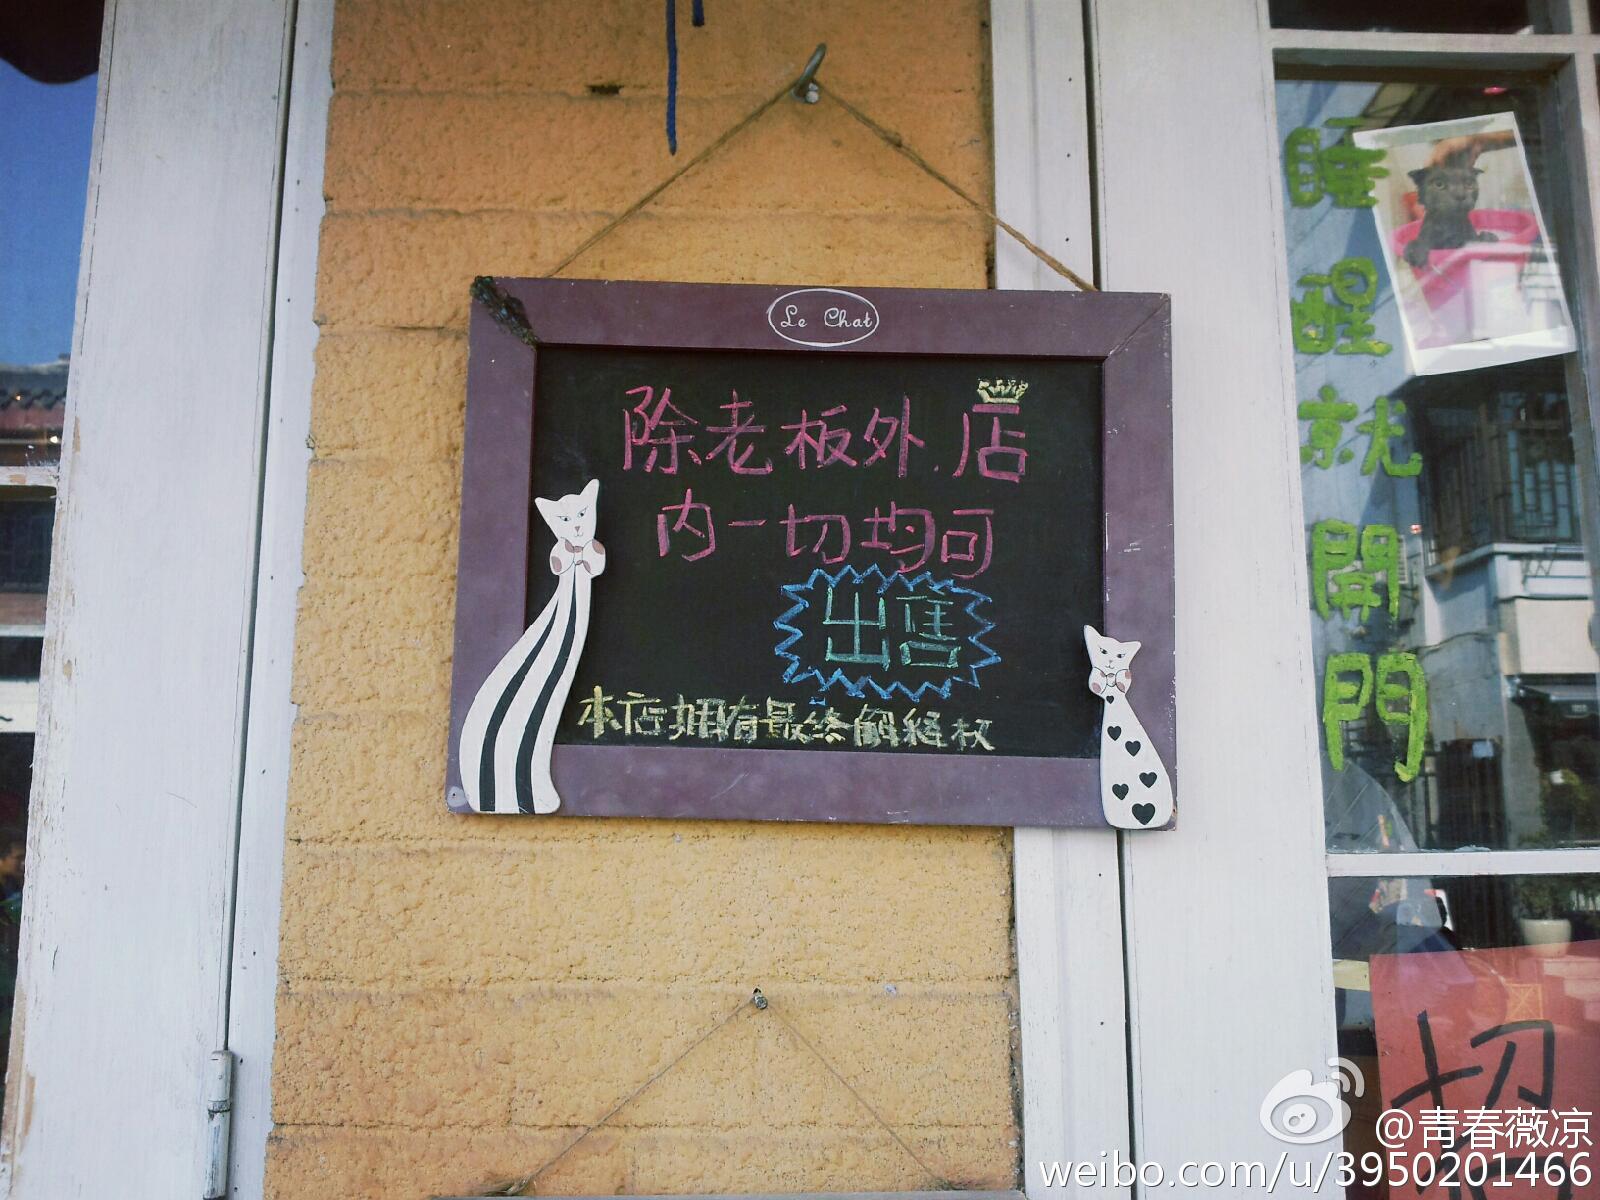 Le Chat
除老板外.店
内一切均可
出售
本店拥有最终解释权
睡醒就開門
切
@青春薇凉
weibo.com/u/3950201466